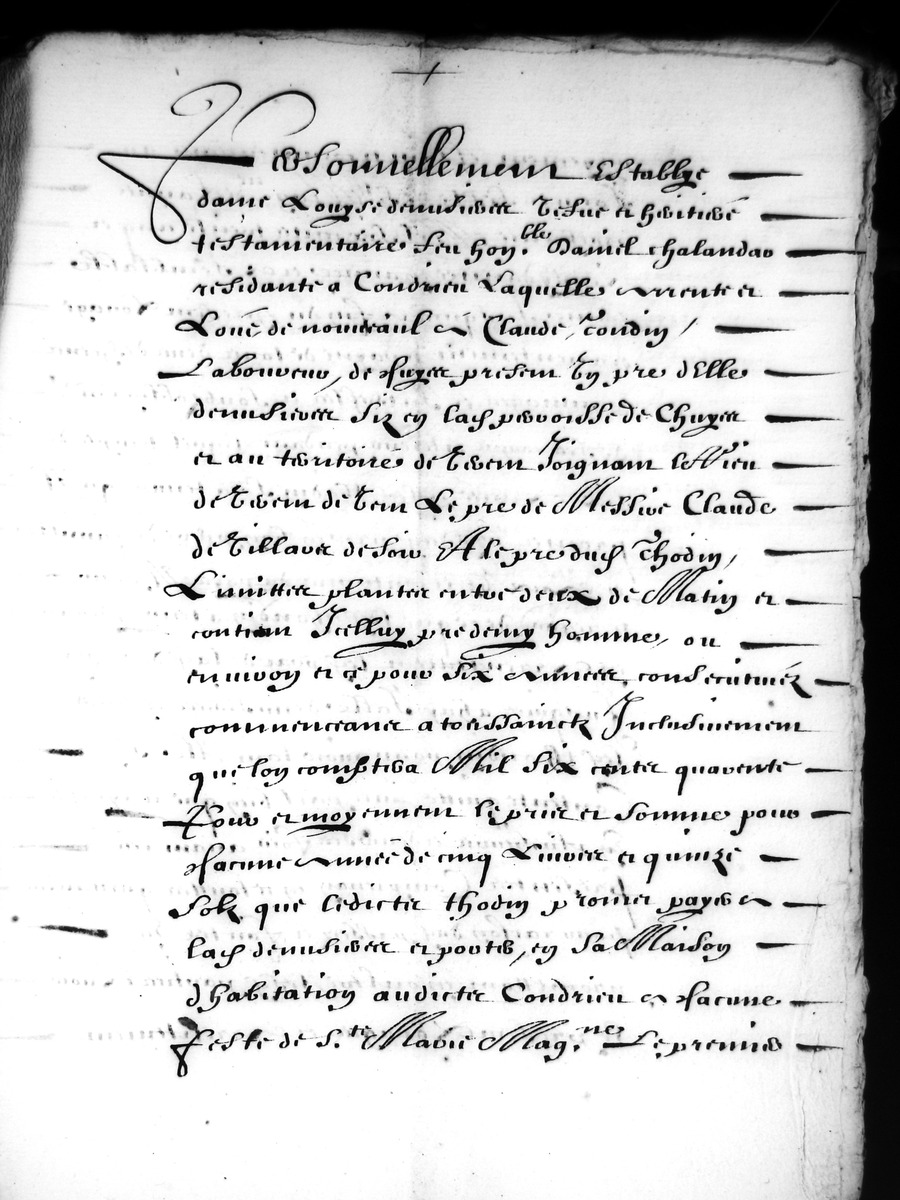 Personnellement establye
dame Louyse demusieres vesve et heritiere
testamentaire feu hon.lle Daniel Chalandar
residante a Condrieu Laquelle arrente et
Loue de nouveaul a Claude Thodin
Laboureur de Chuyer present un pre d'Elle
demusieres siz en lad parroisse de Chuyer
et au territoire de joignant le
de de vent Le pre de Messire Claude
de Villars de soir A le pre dud Thodin
Limittes plantes entre deux de Matin et
contient Icelluy pre demy homme ou
environ et ce pour six annees consecutives
commenceants a toussainctz Inclusivement
que lon comptera Mil six centz quarente
Pour et moyennent le pris et somme pour
chacune annee de cinq Livres et quinze
Solz que ledictz thodin promet payer a
lad demusieres et porter en sa Maison
d'habitation audictz Condrieu a chacune
feste de S.te Marie Mag.ne Le premier